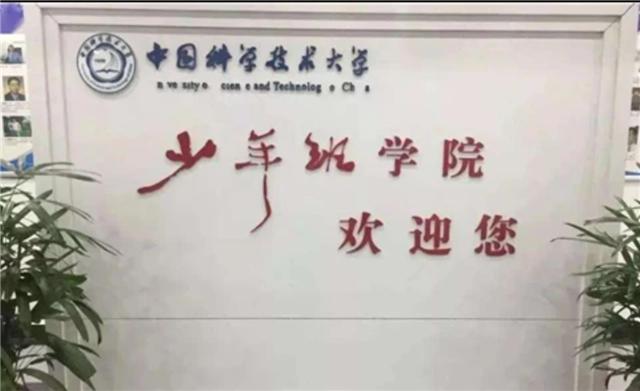 中国科学技术大学
n ve sity o cien e and Technolog o Ch a
少年班学院
欢迎您